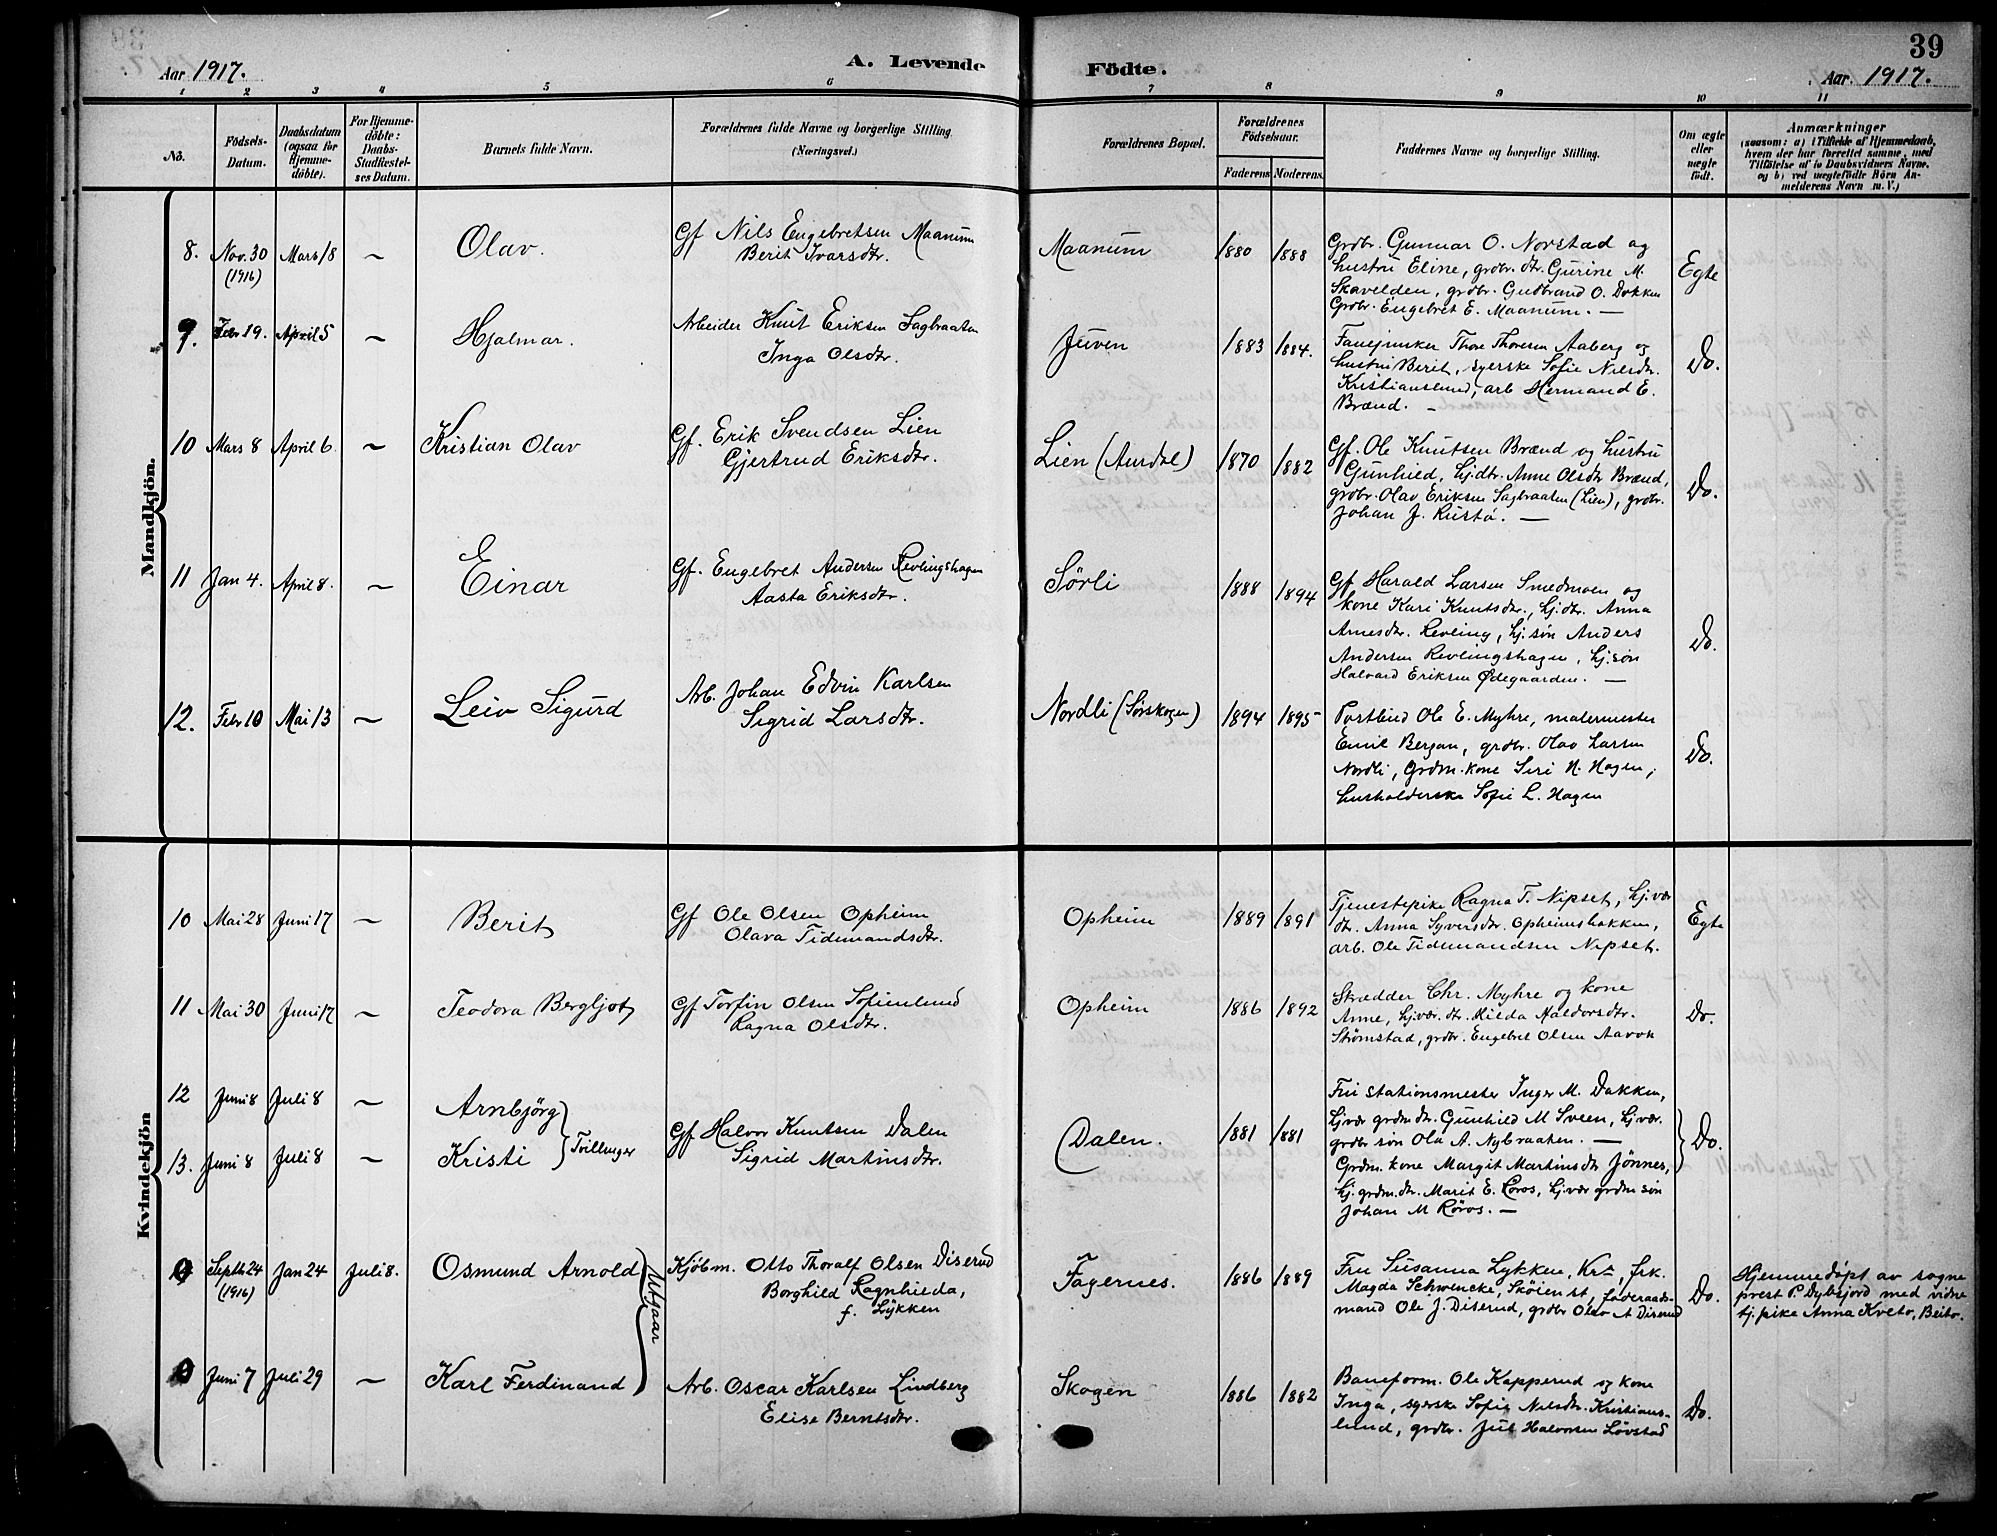 39
Aar 1917.
A. Levende Födte.
Aar. 1917.
1 2 3 4 5 6 7 8 9 10 11
No.
Födsels-Datum.
Daabsdatum (ogsaa for Hjemme-döbte).
For Hjemme-döbte: Daabs-Stadfæstel-ses Datum.
Barnets fulde Navn.
Forældrenes fulde Navne og borgerlige Stilling.
(Næringsvei.)
Forældrenes Bopæl.
Forældrenes Födselsaar.
Faderens Moderens.
Faddernes Navne og borgerlige Stilling.
Om ægte eller uægte födt.
Anmærkninger
(saasom: a) i Tilfælde af Hjemmedaab,
hvem der har forrettet samme, med
Tilföielse af to Daabsvidners Navne.
og b) ved uægtefödte Börn An-
melderens Navn m. V.)
Mandkjön.
8. Nov. 30 (1916) Mars 18 — Olav.
Gf Nils Engebretsen Maanum
Berit Ivarsdtr.
Maanum 1880 1888
Grdbr. Gunnar O. Norstad og
hustru Eline, grdbr. dtr. Gurine M.
Skavelden, grdbr. Gudbrand O. Dokken
Grdbr. Engebret E. Maanum. —
Egte
9. Febr 19. April 5 — Hjalmar.
Arbeider Knut Eriksen Sagbraaten
Inga Olsdtr.
Juven 1883 1884.
Fanejunker Thore Thoresen Aaberg og
hustru Berit, syerske Sofie Nilsdtr.
Kristianslund, arb Hermand E.
Brænd. —
Do.
10 Mars 8 April 6. — Kristian Olav
Gf. Erik Svendsen Lien
Gjertrud Eriksdtr.
Lien (Aurdal) 1870 1882
Gf. Ole Knutsen Brænd og hustru
Gunhild, hj.dtr. Anne Olsdtr Brænd,
grdbr. Olav Eriksen Sagbraaten (Lien), grdbr.
Johan J. Rustø. —
Do.
11 Jan 4. April 8. — Einar
Gf. Engebret Andersen Revlingshagen
Aasta Eriksdtr.
Sørli 1888 1894
Gf Harald Larsen Smedmoen og
kone Kari Knutsdtr., hj.dtr. Anna
Arnesdtr. Revling, hj.søn Anders
Andersen Revlingshagen, hj.søn
Halvard Eriksen Ødegaarden. —
Do.
12. Febr 10 Mai 13 — Leiv Sigurd
Arb. Johan Edvin Karlsen
Sigrid Larsdtr.
Nordli (Sørskogen) 1894 1895
Postbud Ole E. Myhre, malermester
Emil Bergan, grdbr. Olav Larsen
Nordli, Grdm. kone Siri N. Hagen,
husholderske Sofie L. Hagen
Do.
Kvindekjön
10 Mai 28 Juni 17 — Berit
Gf Ole Olsen Opheim
Olava Tidemandsdtr.
Opheim 1889 1891
Tjenestepike Ragna T. Nipset, hj.vær
dtr. Anna Syversdtr. Opheimsbakken,
arb. Ole Tidemandsen Nipset.
Egte
11 Mai 30 Juni 17 — Teodora Bergljot
Gf Torfin Olsen Sofienlund
Ragna Olsdtr.
Opheim 1886 1892
Skrædder Chr. Myhre og kone
Anne, hj.vær. dtr. Hilda Haldorsdtr.
Strømstad, grdbr. Engebret Olsen Aavok
Do.
12 Juni 8 Juli 8 — Arnbjörg
13. Juni 8 Juli 8 — Kristi
Tvillinger
Gf Halvor Knutsen Dalen
Sigrid Martinsdtr.
Dalen. 1881 1881
Fru stationsmester Inger M. Dokken,
hj.vær grdm. dtr. Gunhild M Sveen, hj.vær.
grdbr søn Ola A. Nybraaten. —
Grdm. kone Margit Martinsdtr Jönnes,
hj. grdm. dtr. Marit E. Røros, hj.vær grdm søn
Johan M Röros. —
Do.
9 Septb 24 (1916) Jan 24 Juli 8. Osmund Arnold
Kjöbm. Otto Thoralf Olsen Diserud
Borghild Ragnhilda,
f. Lykken
Fagernes. 1886 1889
Fru Susanna Lykken, Kra, frk.
Magda Schwencke, Skøien st,
mand Ole J. Diserud, grdbr Olav A Diserud
Do.
Hjemmedøpt av sogne
prest P. Dybsjord med vidne
tj. pike Anna Kveto, Beito.
Mutgaar
Juni 7 Juli 29 — Karl Ferdinand
Arb. Oscar Karlsen Lindberg
Elise Berntsdtr.
Skogen 1886 1882
Baneform. Ole Kapperud og kone
Inga, syerske Sofie Nilsdtr. Kristians-
lund, grdbr. Jul Halvorsen Løvstad
Do.